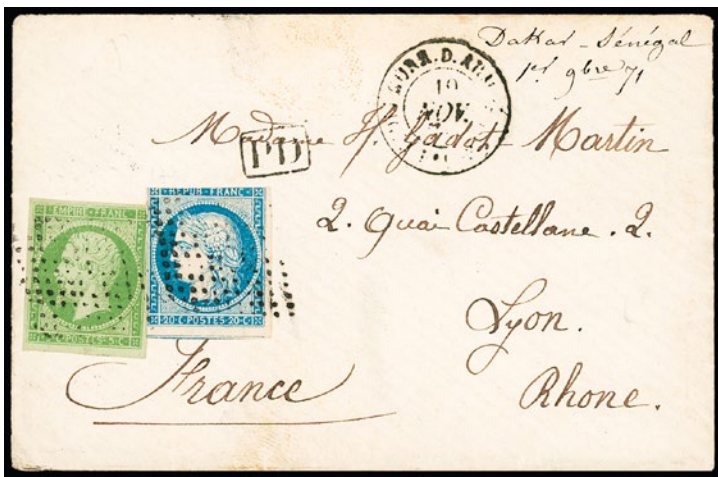 Dakar - Sénégal
1er 9bre 71
CORR. D. AR
10
NOV.
Madame H. Gadot-Martin
PD
2. Quai Castellane. 2.
Lyon.
Rhone.
France
EMPIRE FRANC
5-C POSTES 5-C
REPUB FRANC
20-C POSTES 20-C